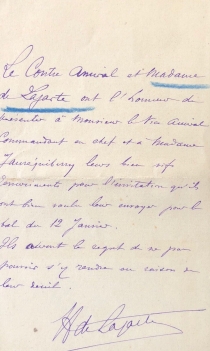 Le Contre Amiral et Madame
de Lajarte ont l'honneur de
présenter à Monsieur le Vice Amiral
Commandant en chef et à Madame
Jauréguiberry leurs bien vifs
remerciements pour l'invitation qu'ils
ont bien voulu leur envoyer pour le
bal du 12 Janvier.
Ils auront le regret de ne pas
pouvoir s'y rendre en raison de
leur deuil.
H de Lajarte